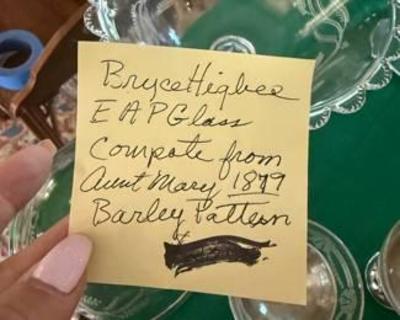 Bryce Higbee
E A P Glass
Compote from
Aunt Mary 1879
Barley Pattern